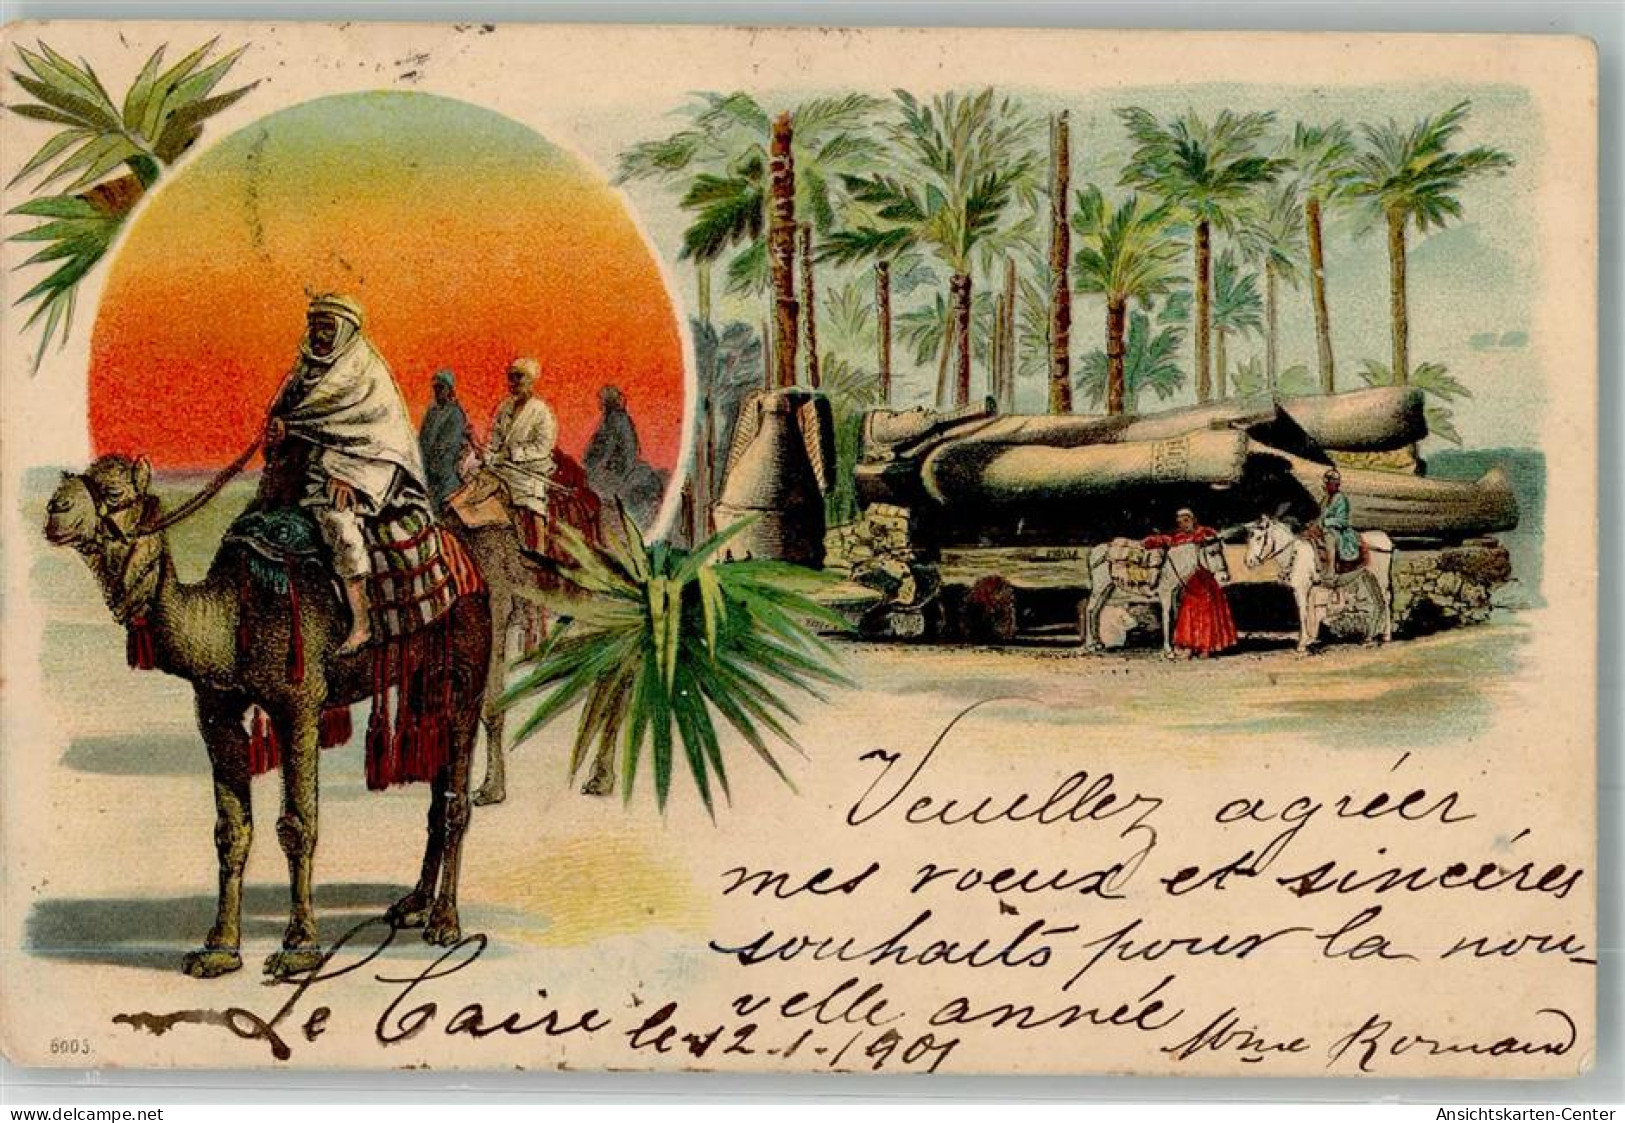 Veuillez agréer
mes voeux et sincéres
souhaits pour la nou-
velle année
Le Caire le 12.1.1901
Mme Romand
6003.
delcampe.net
Ansichtskarten-Center